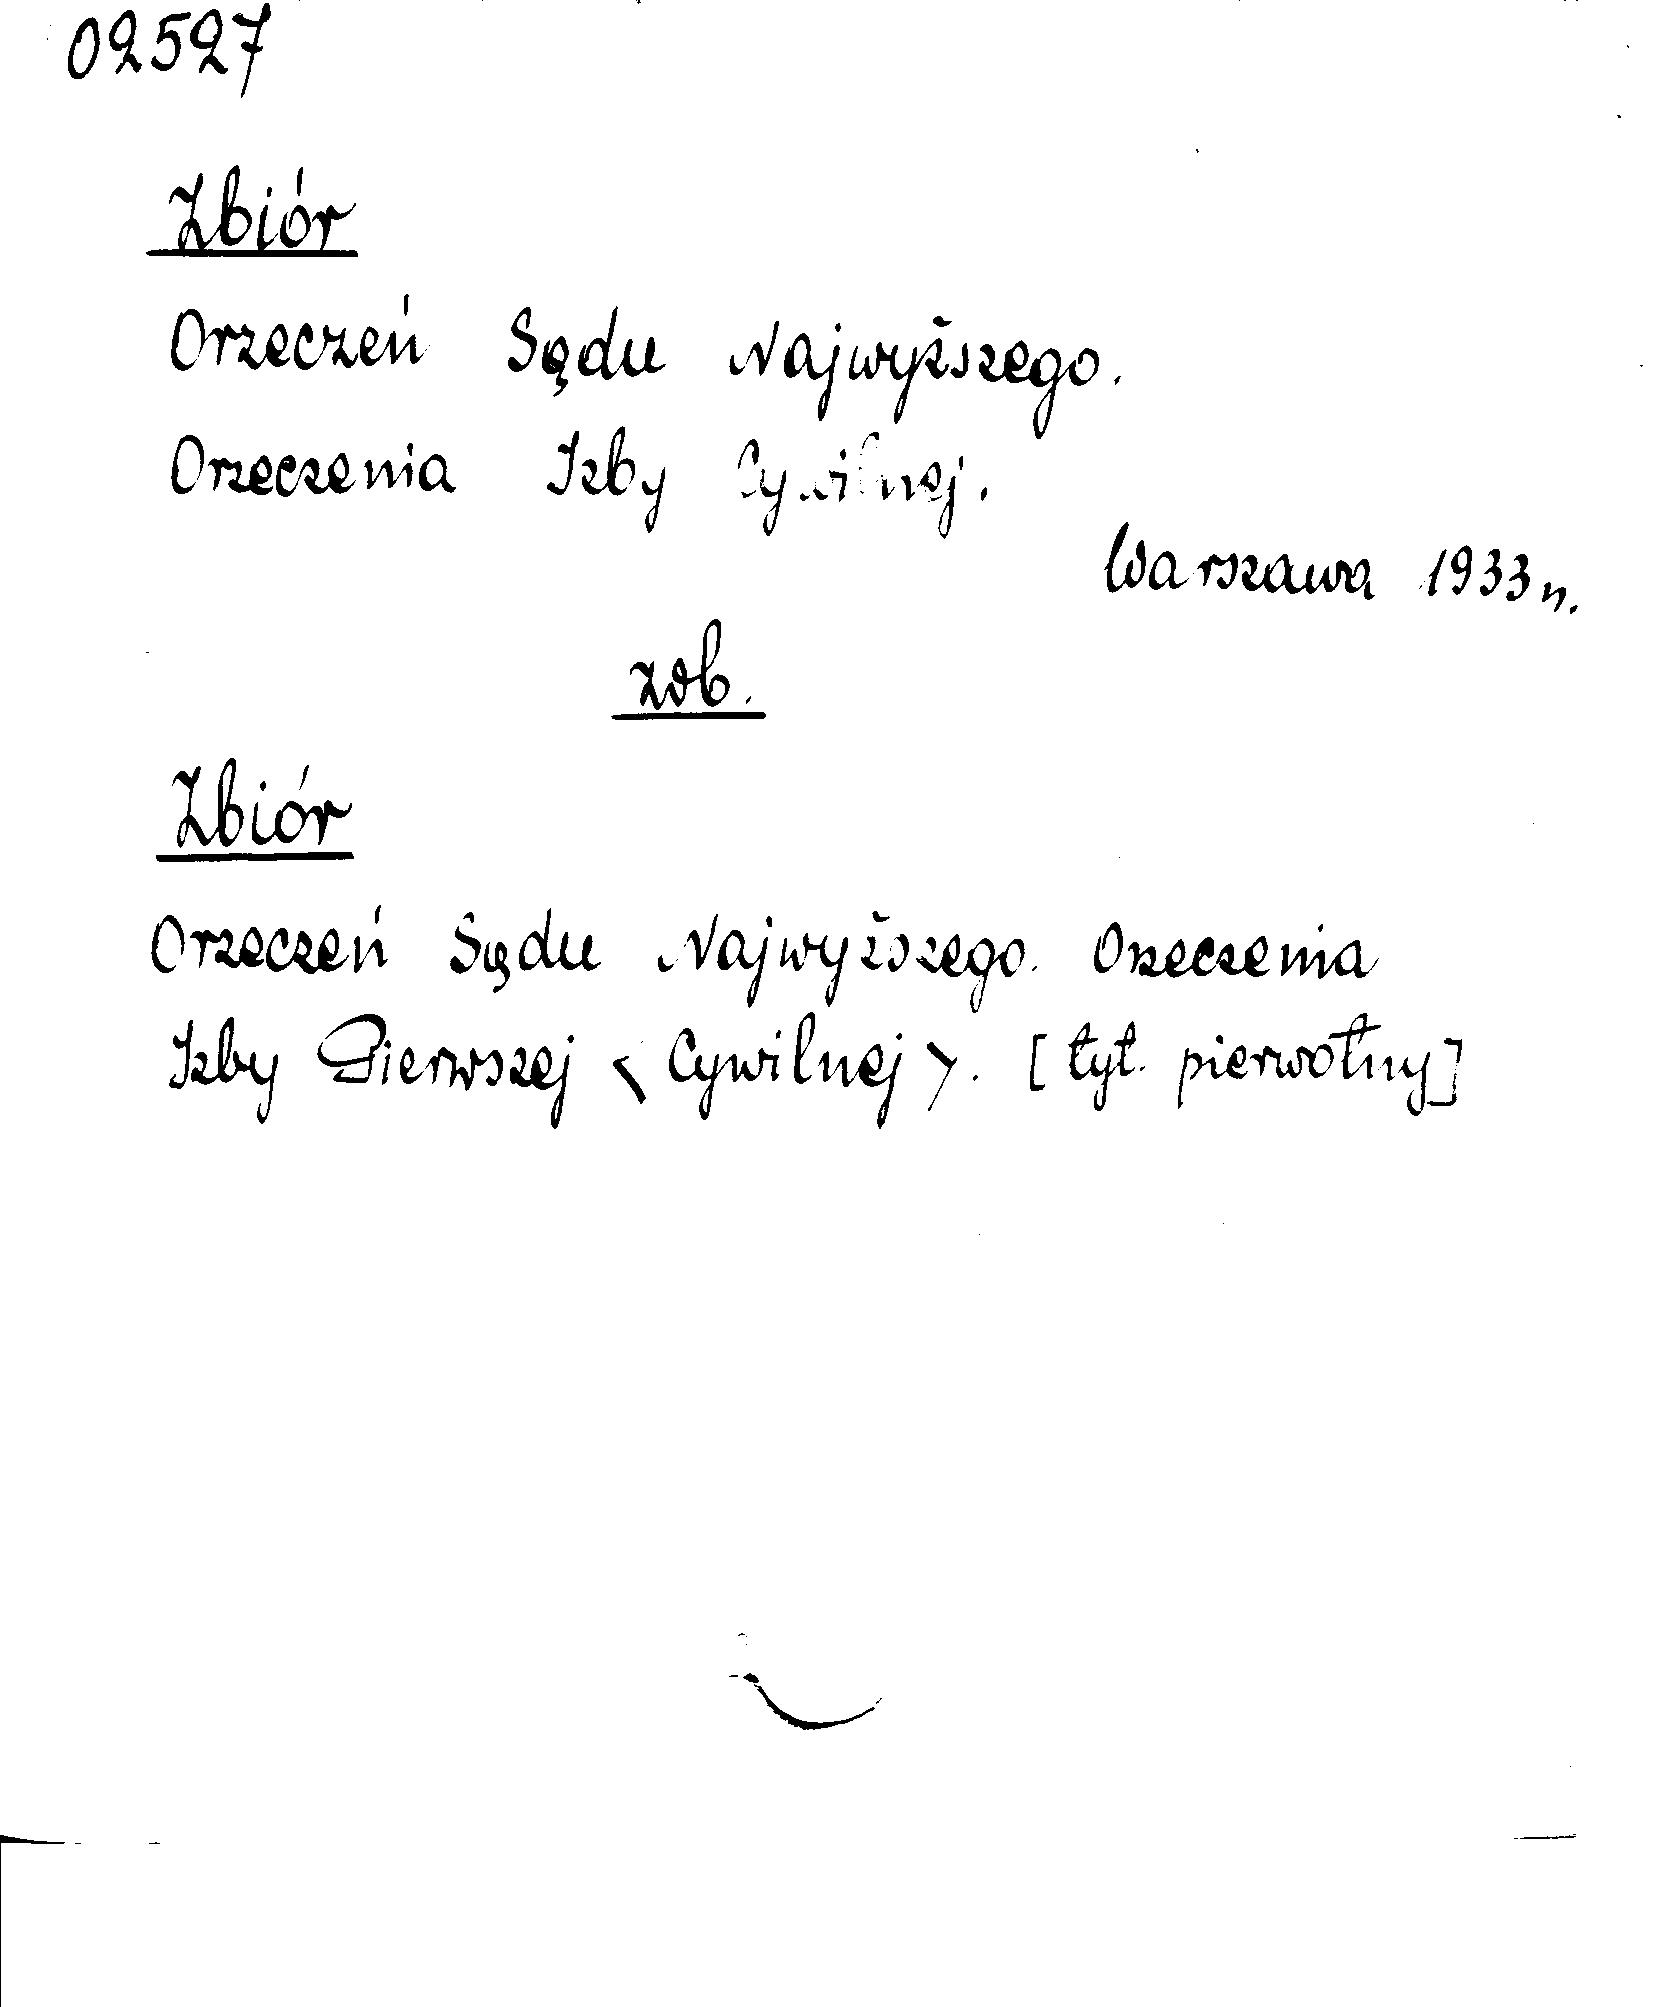 02527
Zbiór
Orzeczeń Sądu Najwyższego.
Orzeczenia Izby Cywilnej.
Warszawa 1933 n.
zob.
Zbiór
Orzeczeń Sądu Najwyższego. Orzeczenia
Izby Pierwszej < Cywilnej >. [tyt. pierwotny]